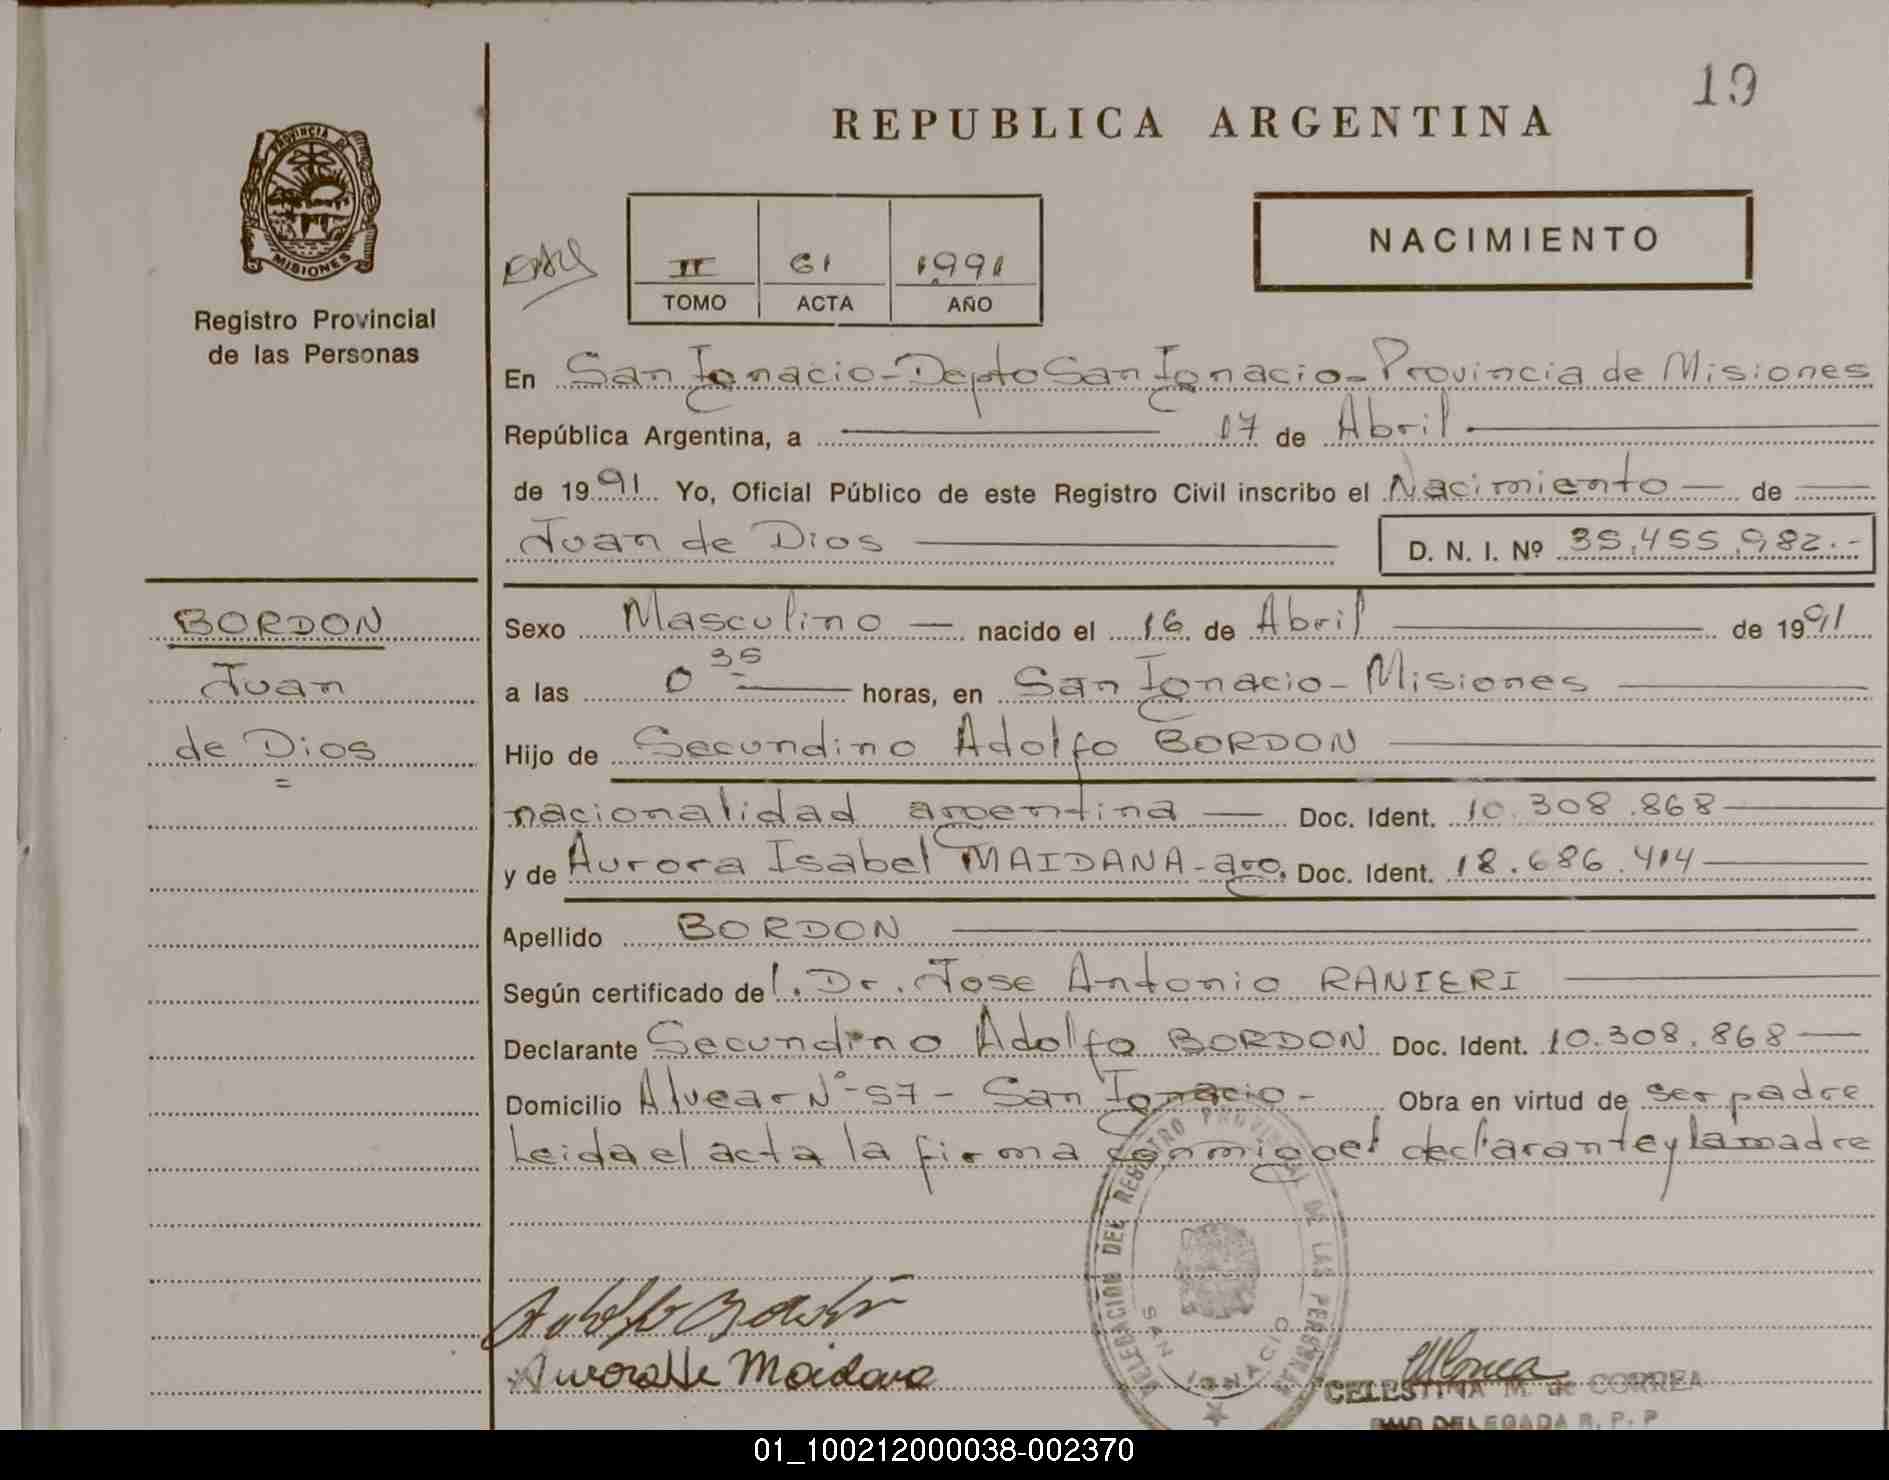 19
REPUBLICA ARGENTINA
PROVINCIA DE
MISIONES
Registro Provincial
de las Personas
II 61 1991
TOMO ACTA AÑO
NACIMIENTO
En San Ignacio - Depto San Ignacio - Provincia de Misiones
República Argentina, a 17 de Abril
de 1991 Yo, Oficial Público de este Registro Civil inscribo el Nacimiento de
Juan de Dios D. N. I. Nº 35.455.982.-
BORDON
Juan
de Dios
Sexo Masculino nacido el 16 de Abril de 1991
a las 0 35 horas, en San Ignacio - Misiones
Hijo de Secundino Adolfo BORDON
nacionalidad argentina Doc. Ident. 10.308.868
y de Aurora Isabel MAIDANA - arg. Doc. Ident. 18.686.414
Apellido BORDON
Según certificado del. Dr. Jose Antonio RANIERI
Declarante Secundino Adolfo BORDON Doc. Ident. 10.308.868
Domicilio Alvear Nº 57 - San Ignacio - Obra en virtud de ser padre
Leida el acta la firma conmigo el declarante y la madre
DELEGACION DEL REGISTRO PROVINCIAL DE LAS PERSONAS
SAN IGNACIO
Adolfo Bordón
Maidana
CELESTINA M. de CORREA
DELEGADA R. P. P
01_100212000038-002370